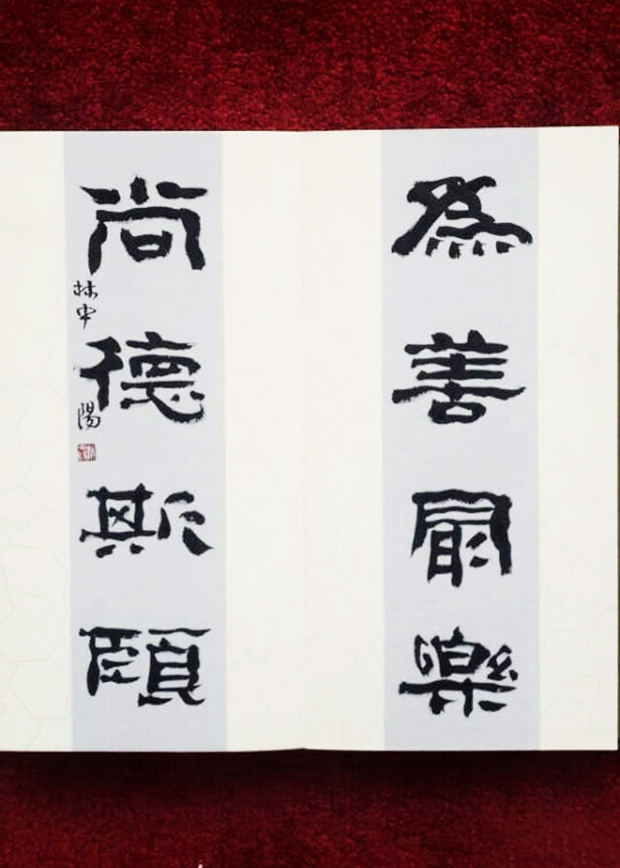 為善最樂
尚德斯頤
林中陽